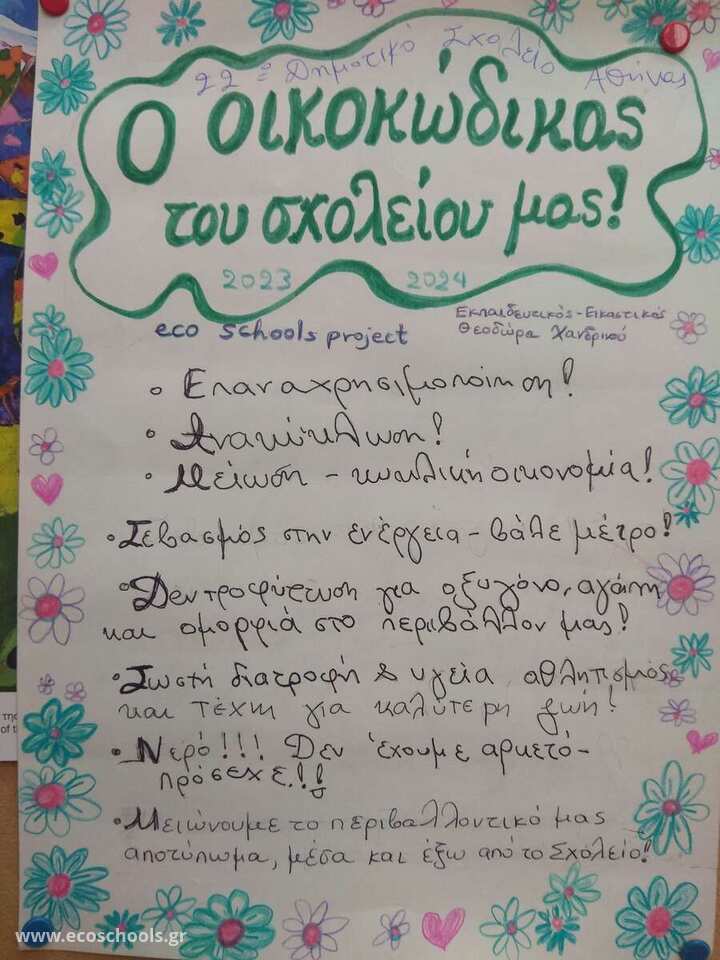 22º Δημοτικό Σχολείο Αθήνας
Ο οικοκώδικας
του σχολείου μας!
2023 2024
eco schools project
Εκπαιδευτικός-Εικαστικός
Θεοδώρα Χανδρινού
• Επαναχρησιμοποίηση!
• Ανακύκλωση!
• Μείωση - κυκλική οικονομία!
• Σεβασμός στην ενέργεια - βάλε μέτρο!
• Δεντροφύτευση για οξυγόνο, αγάπη
και ομορφιά στο περιβάλλον μας!
• Σωστή διατροφή & υγεία, αθλητισμός
και τέχνη για καλύτερη ζωή!
• Νερό!!! Δεν έχουμε αρκετό-
πρόσεχε!!
• Μειώνουμε το περιβαλλοντικό μας
αποτύπωμα, μέσα και έξω από το Σχολείο!
της
of t
www.ecoschools.gr